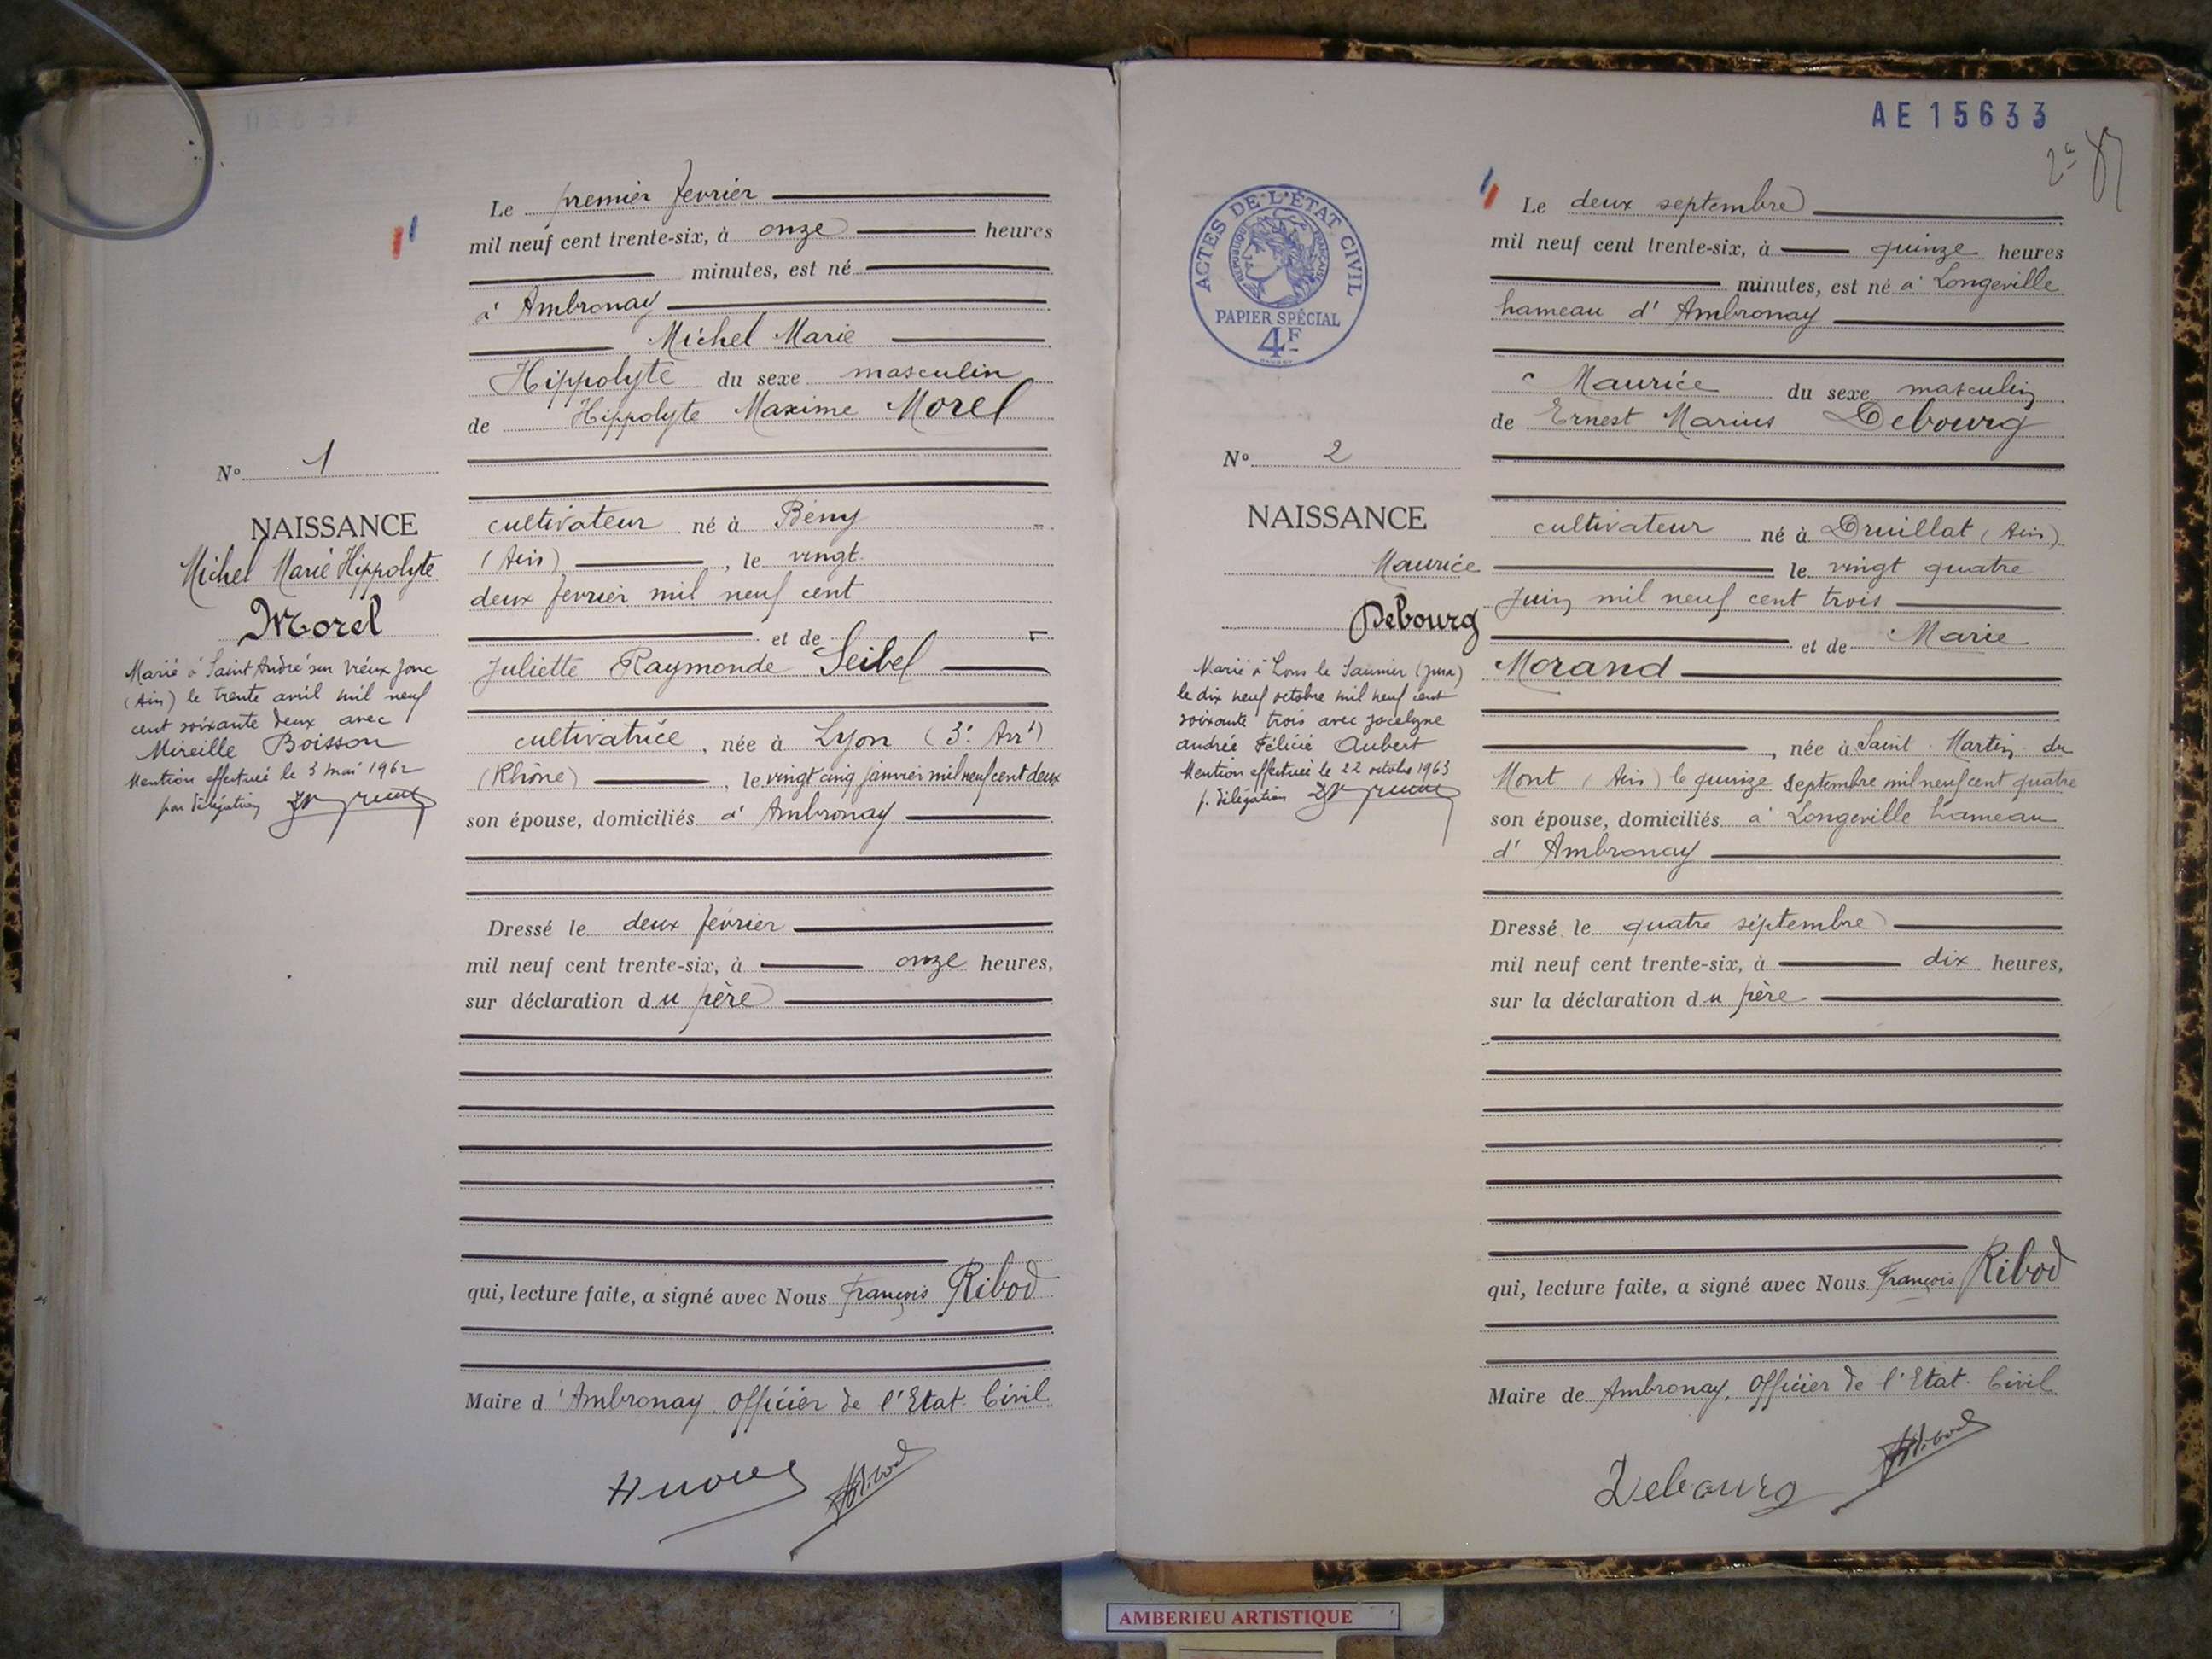 Le premier fevrier
mil neuf cent trente-six, à onze heures
minutes, est né
à Ambronay
Michel Marie
Hippolyte du sexe masculin
de Hippolyte Maxime Morel
N° 1
NAISSANCE
Michel Marie Hippolyte
Morel
Marié à Saint André sur Vieux Jonc
(Ain) le trente avril mil neuf
cent soixante deux avec
Mireille Boisson
Mention effectuée le 3 mai 1962
par délégation
cultivateur né à Beny
(Ain), le vingt
deux fevrier mil neuf cent
et de
Juliette Raymonde Seibel
cultivatrice, née à Lyon (3e Arrt)
(Rhône), le vingt cinq janvier mil neuf cent deux
son épouse, domiciliés à Ambronay
Dressé le deux février
mil neuf cent trente-six, à onze heures,
sur déclaration du père
qui, lecture faite, a signé avec Nous François Ribod
Maire d'Ambronay, Officier de l'Etat-Civil
Ribod
AE15633
ACTES DE L'ÉTAT CIVIL
RÉPUBLIQUE FRANÇAISE
PAPIER SPÉCIAL
4F
Le deux septembre
mil neuf cent trente-six, à quinze heures
minutes, est né à Longeville
hameau d'Ambronay
Maurice du sexe masculin
de Ernest Marius Debourg
N° 2
NAISSANCE
Maurice
Debourg
Marié à Lons le Saunier (Jura)
le dix neuf octobre mil neuf cent
soixante trois avec Jocelyne
Andrée Félicie Aubert
Mention effectuée le 22 octobre 1963
p. délégation
cultivateur né à Druillat (Ain)
le vingt quatre
Juin mil neuf cent trois
et de Marie
Morand
, née à Saint-Martin-du
Mont (Ain) le quinze Septembre mil neuf cent quatre
son épouse, domiciliés à Longeville hameau
d'Ambronay
Dressé le quatre septembre
mil neuf cent trente-six, à dix heures,
sur la déclaration du père
qui, lecture faite, a signé avec Nous François Ribod
Maire de Ambronay, Officier de l'Etat-Civil
Debourg Ribod
AMBERIEU ARTISTIQUE